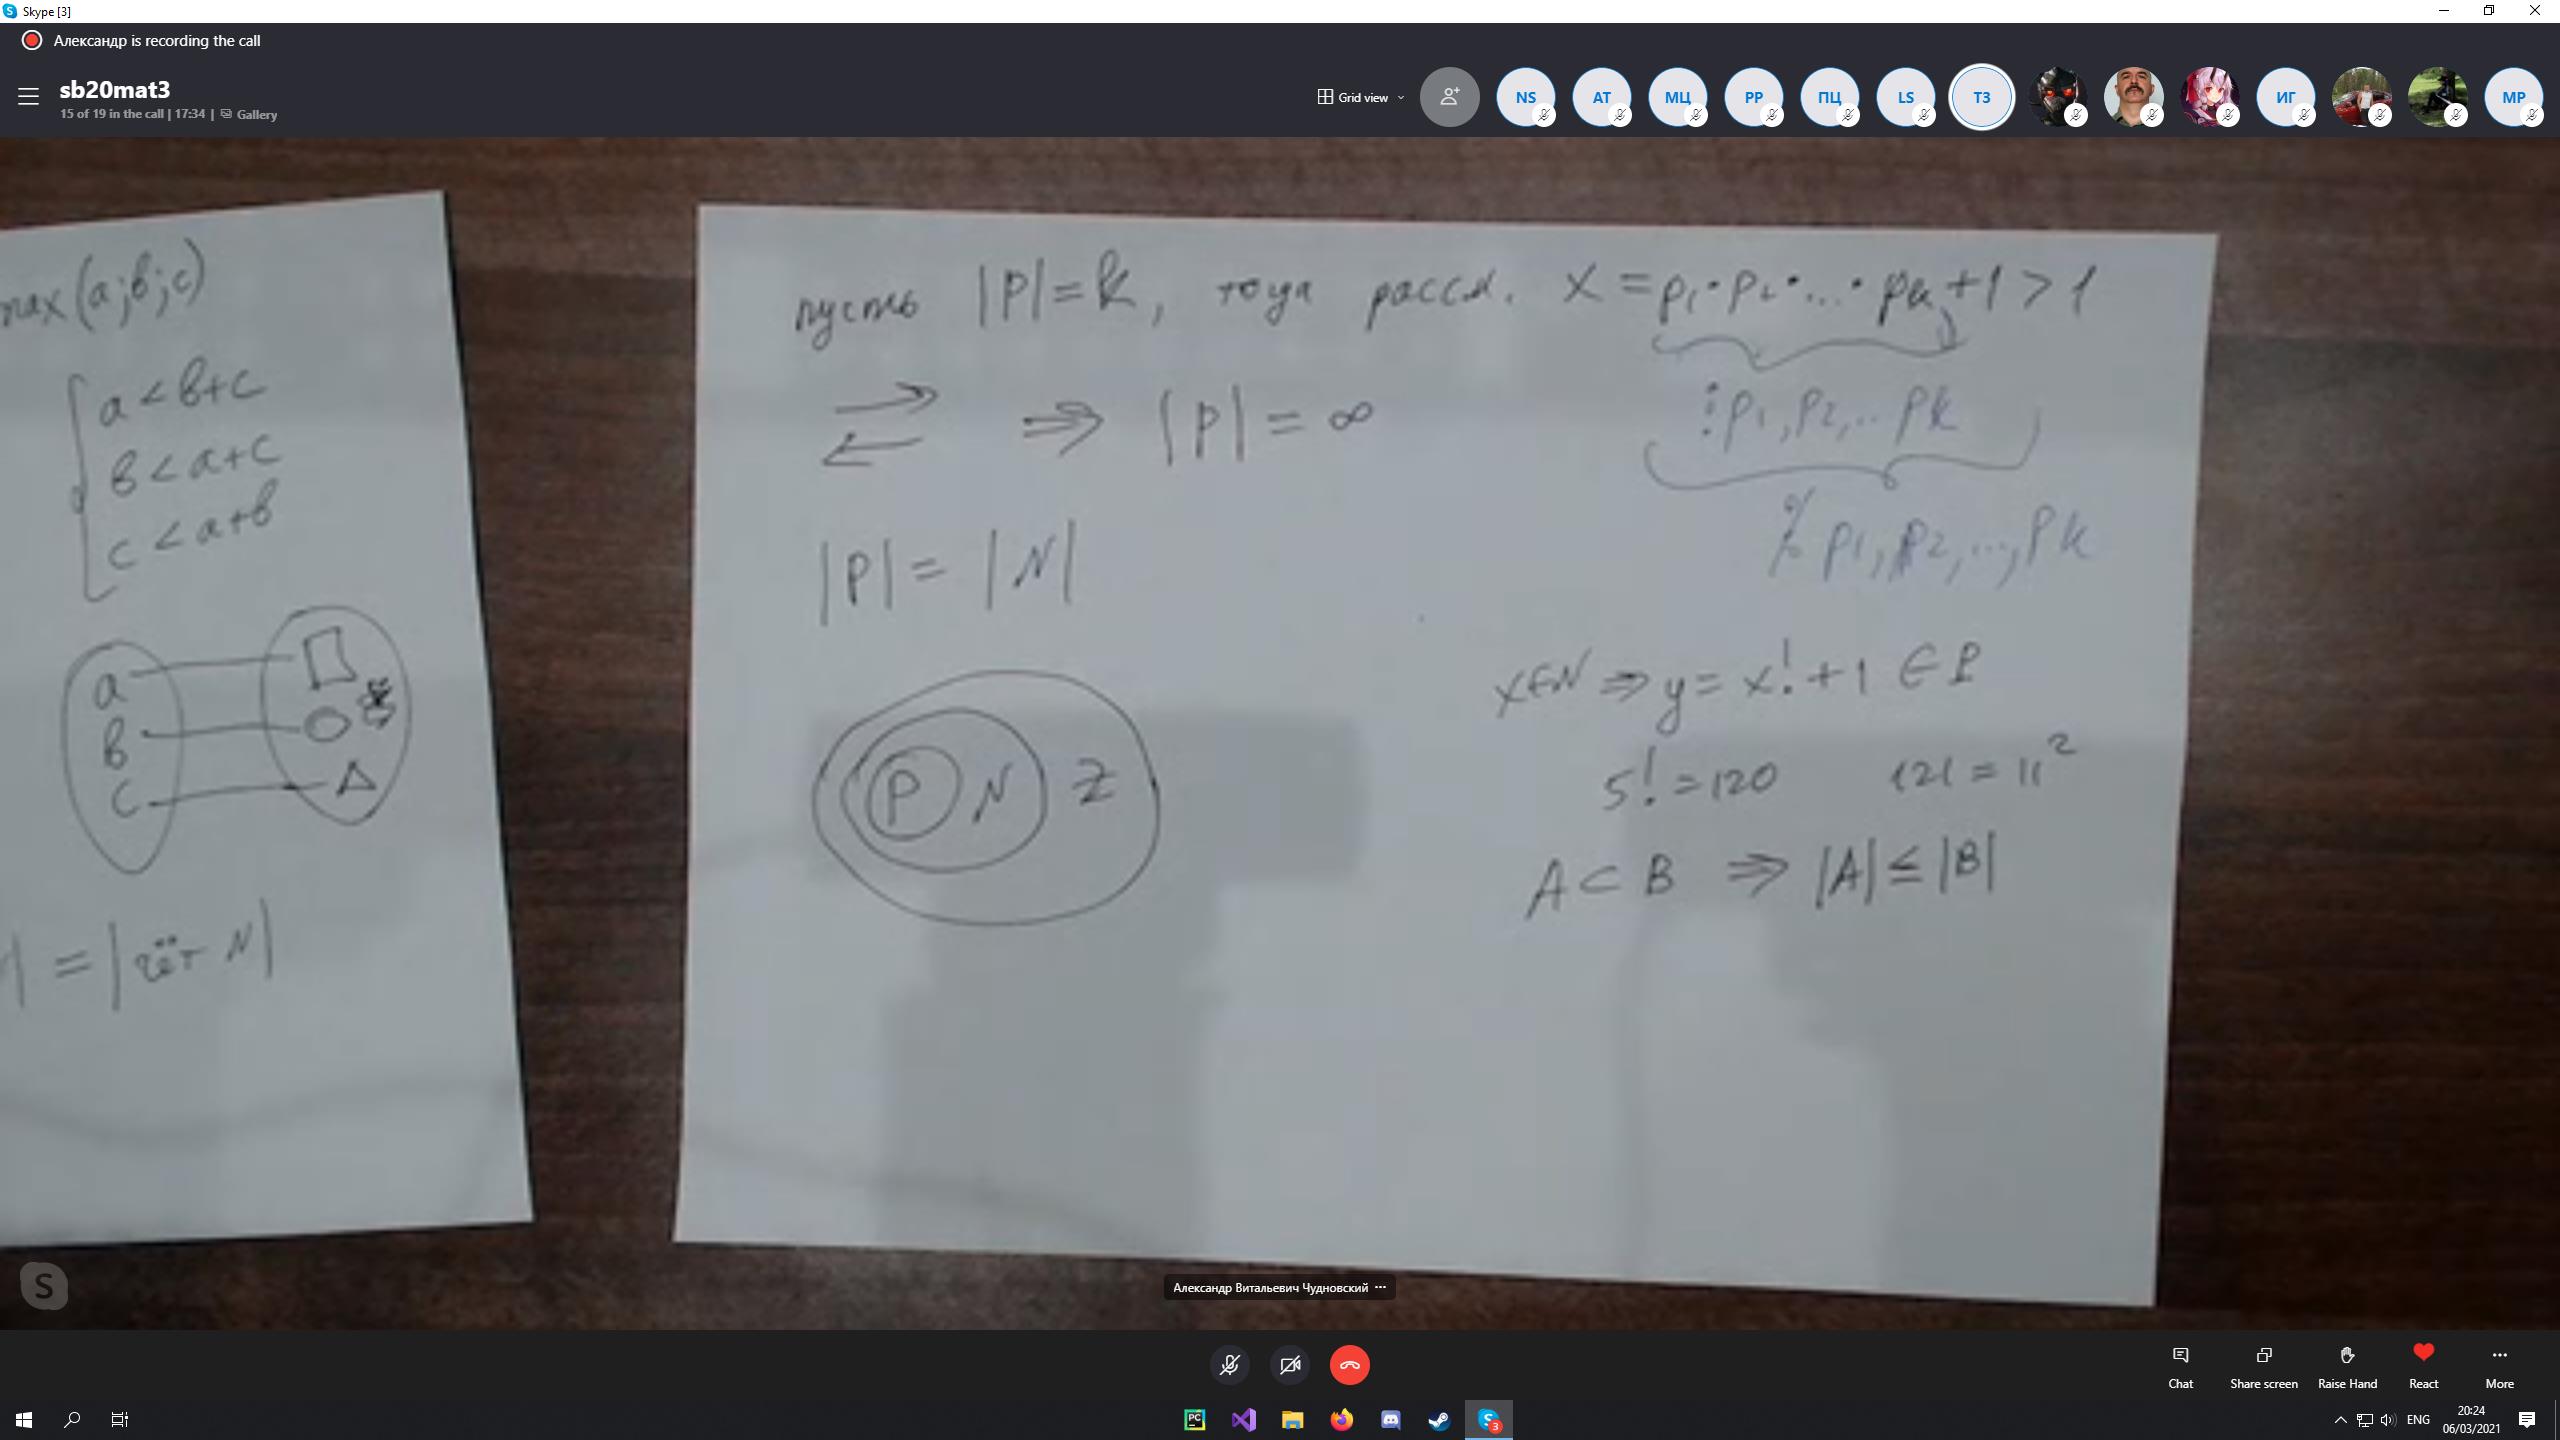 Skype [3]
Александр is recording the call
sb20mat3
15 of 19 in the call | 17:34 | Gallery
Grid view
NS
AT
МЦ
PP
ПЦ
LS
ТЗ
ИГ
MP
max(a;b;c)
a<b+c
b<a+c
c<a+b
a
b
c
| = |чёт N|
пусть |P|=k, тогда рассм. x = p1·p2·...·pk+1>1
⋮p1,p2,..pk
⇒ |P| = ∞
p1,p2,...,pk
|P| = |N|
x∈N ⇒ y = x!+1 ∈ P
P N Z
5! = 120 121 = 11²
A ⊂ B ⇒ |A| ≤ |B|
Александр Витальевич Чудновский
Chat
Share screen
Raise Hand
React
More
PC
3
ENG
20:24
06/03/2021